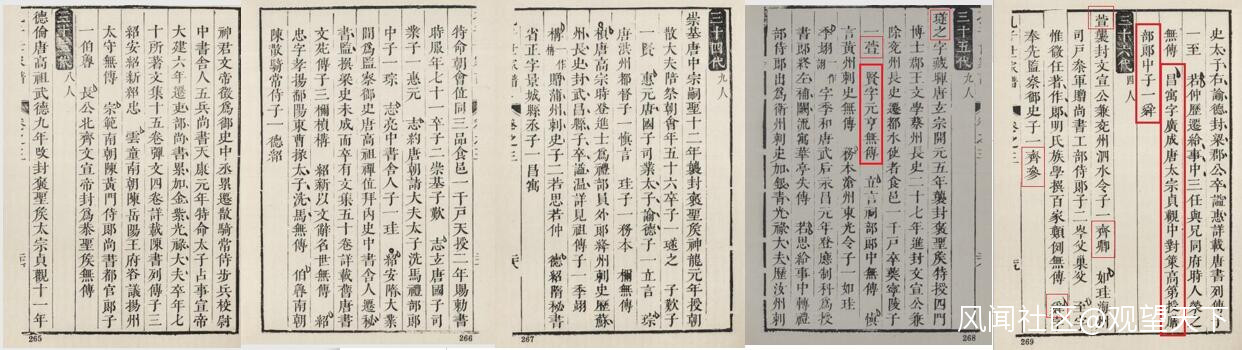 神君文帝徵爲御史中丞累遷散騎常侍步兵校尉
中書舍人五兵尚書天康元年特命太子占事宣帝
大建六年遷吏部尚書累加金紫光祿大夫卒年七
十所著文集十五卷彈文四卷詳載陳書列傳子三
紹安 紹新 紹忠 雲童南朝陳岳陽王府咨議揚州
太守無傳 宗範南朝陳黃門侍郎尚書都官郎子
一伯魯 長公北齊文宣帝封爲恭聖矦無傳
八人
德倫唐高祖武德九年改封褒聖矦太宗貞觀十一年
265
待命朝會位同三品食邑一千戶天授二年賜勅書
時服年七十一卒子二崇基子歎 志玄唐國子司
業子一惠元 志約唐朝請大夫太子洗馬禮部郎
中子一琮 志亮中書舍人子一珪 紹安隋大業
間爲監察御史唐高祖禪位拜內史中書舍人遷秘
書監撰梁史未成而卒有文集五十卷詳載舊唐書
文苑傳子三禰楨構 紹新以文辭名世無傳 紹
忠字孝揚鄱陽東曹掾太子洗馬無傳 伯魯南朝
陳散騎常侍子一德紹
266
三十四代 九人
崇基唐中宗嗣聖十二年襲封褒聖矦神龍元年授朝
散大夫陪祭朝會年五十六卒子一璲之 子歎子
一賢 惠元唐國子司業太子諭德子一立言 琮
唐洪州都督子一慎言 珪子一務本 禰無傳
楨唐高宗時登進士爲禮部員外郎將州刺史歷蘇
州長史封武昌縣子卒謚溫詳見祖傳子一季詡
構一作贈澧州刺史子二若思若仲 德紹隋秘書
省正字景城縣丞子一昌寓
267
三十五代 九人
璲之字藏暉唐玄宗開元五年襲封褒聖矦特授四門
博士邵王府文學蔡州長史二十七年進封文宣公兼
除兗州長史遷都水使者食邑一千戶卒葬寧陵子
一萱 賢字元亨無傳 立言祠部郎中無傳 慎
言黃州刺史無傳 務本滄州東光令子一如珪
季詡 字季和唐武后永昌元年登應制科爲授
書郎終左補闕流寓華亭失傳 若思給事中轉禮
部侍郎出爲衛州刺史 加銀青光祿大夫歷汝州刺
268
史太子右諭德封梁郡公卒謚惠詳載唐書列傳
一至 若仲歷遷給事中三任與兄同府時人榮之
無傳 昌寓字廣成唐太宗貞觀中對策高第授膳
部郎中子一舜
三十六代 四人
萱襲封文宣公兼兗州泗水令子一齊卿 如珪海
司戶叅軍贈尚書工部侍郎子二岑父巢父
惟微任著作郎明氏族學撰百家類例無傳 舜
奉先監察御史子一齊參
269
风闻社区@观望天下